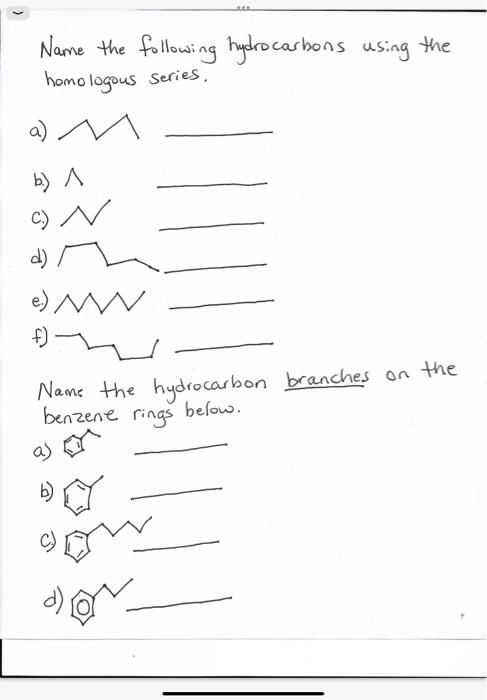 Name the following hydrocarbons using the
homologous series.
a)
b.)
c.)
d)
e.)
f.)
Name the hydrocarbon branches on the
benzene rings below.
a)
b)
c)
d)